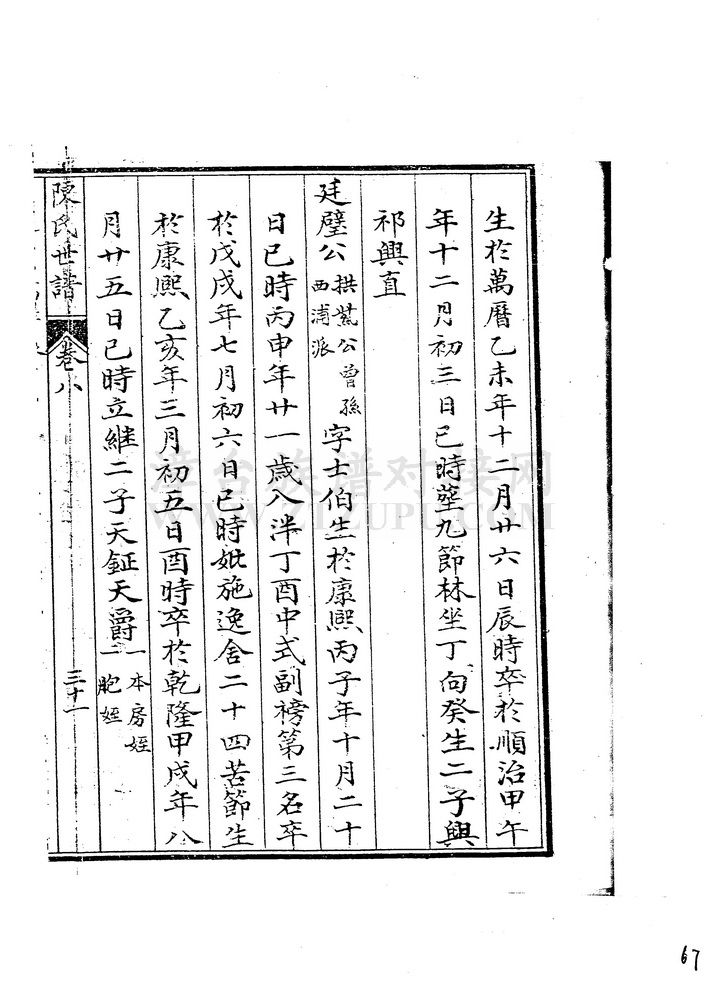 生於萬曆乙未年十二月廿六日辰時卒於順治甲午
年十二月初三日巳時塟九節林坐丁向癸生二子興
祁興直
廷璧公拱薇公曾孫
西浦派
字士伯生於康熙丙子年十月二十
日巳時丙申年廿一歲入泮丁酉中式副榜第三名卒
於戊戌年七月初六日巳時妣施逸舍二十四苦節生
於康熙乙亥年三月初五日酉時卒於乾隆甲戌年八
月廿五日巳時立継二子天鉦天爵
一本房姪
一胞姪
陳氏世譜 卷八 三十一
漳台族谱对接网
WWW.ZTZUPU.COM
67